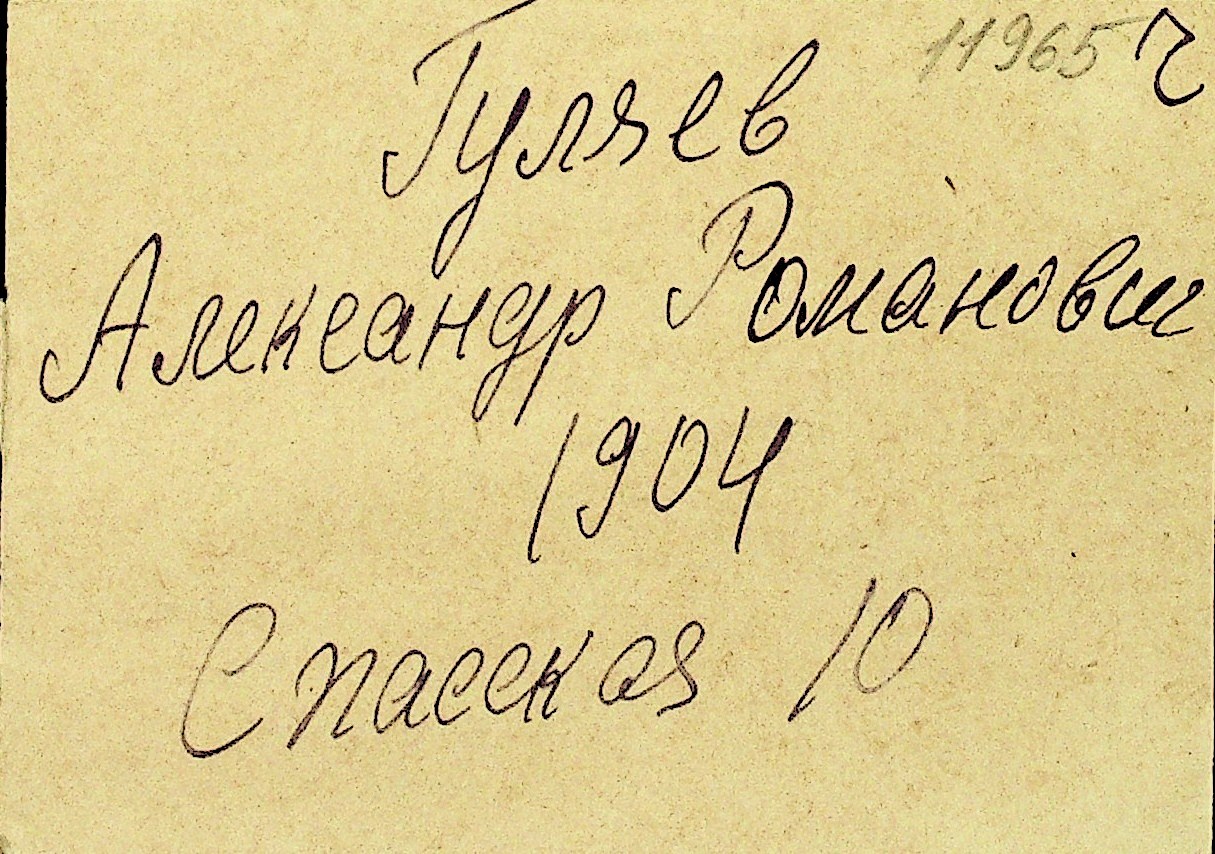 11965 ч
Гуляев
Александр Романович
1904
Спасская 10